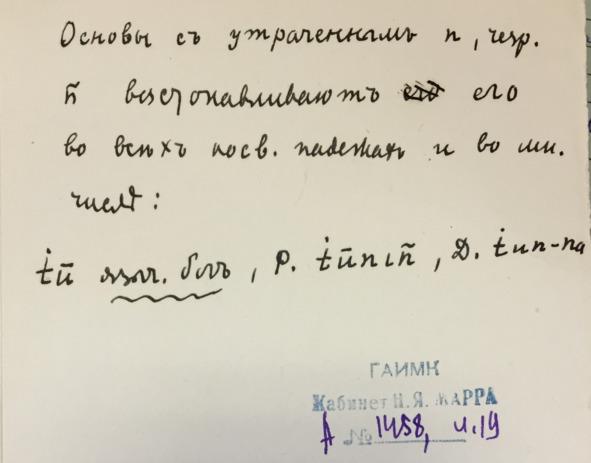 Основы съ утраченнымъ n, чезр.
n̄ возстонавливаютъ его
во всѣхъ косв. падежахъ и во мн.
числѣ:
ṫū языч. богъ, Р. ṫūnin̄, Д. ṫun-na
ГАИМК
Кабинет Н.Я. МАРРА
А № 1458, и.19